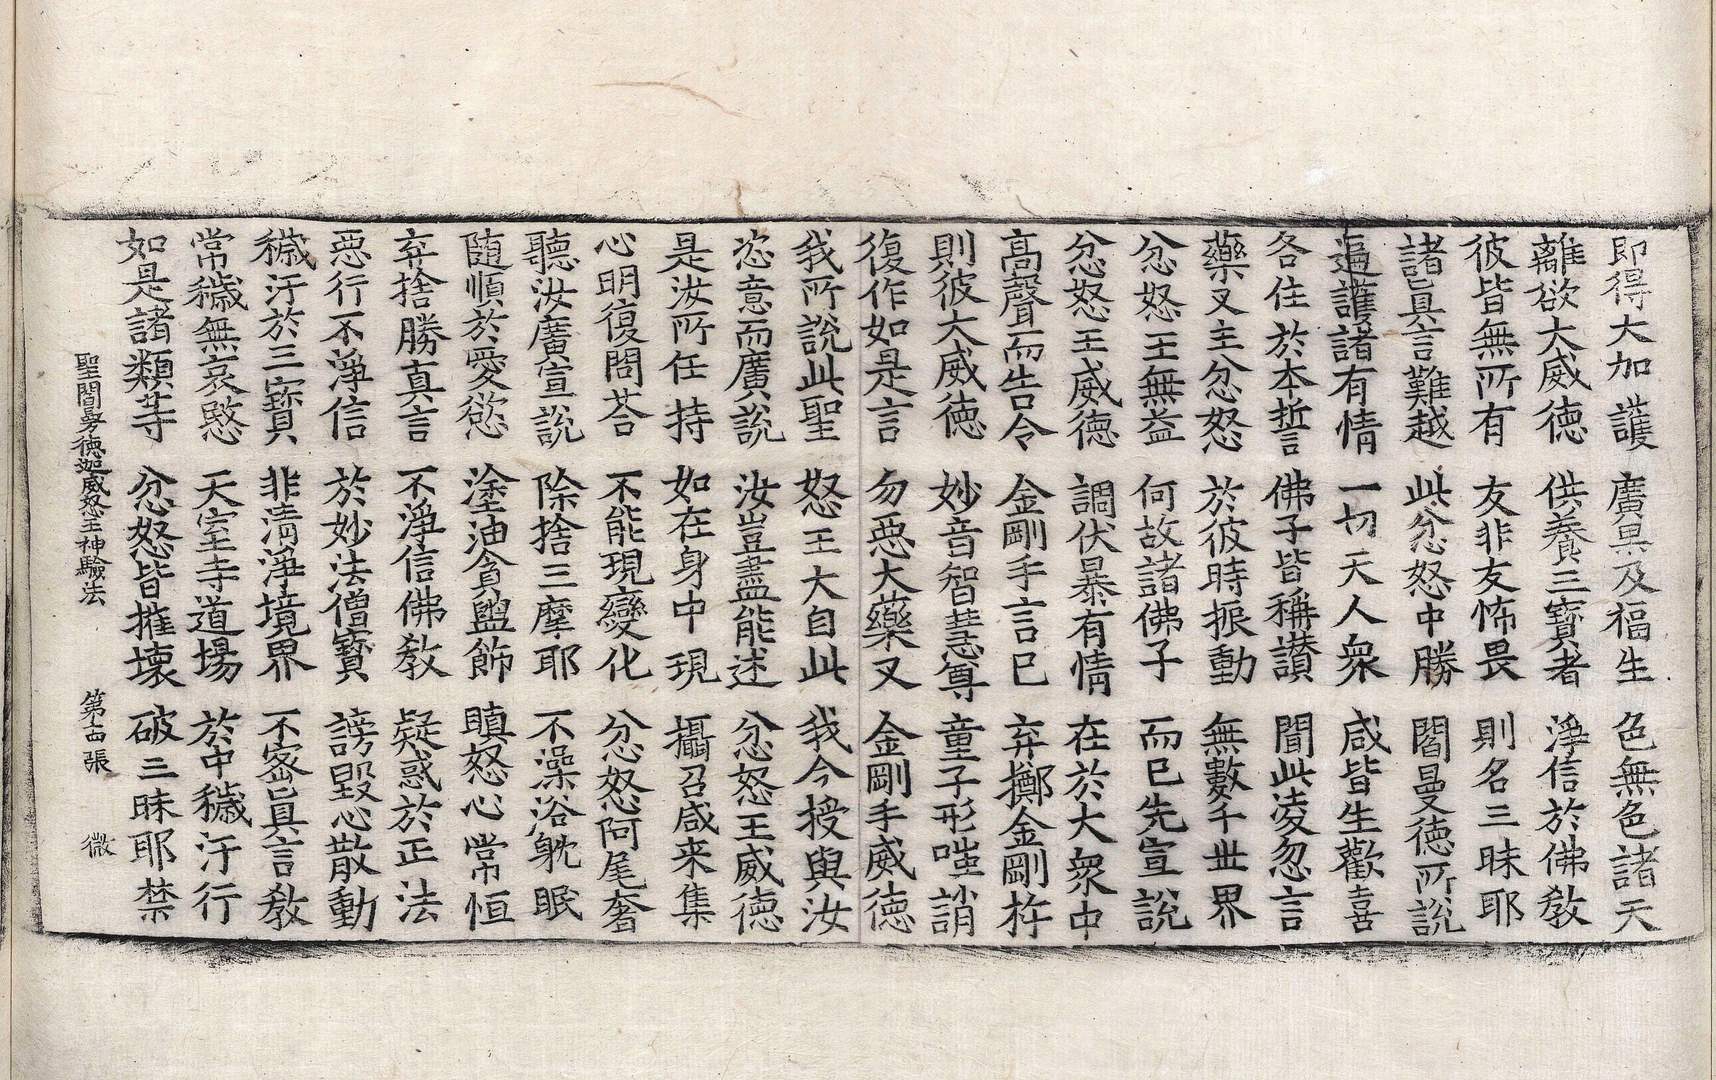 即得大加護　廣具及福生　色無色諸天
離欲大威徳　供養三寶者　淨信於佛教
彼皆無所有　友非友怖畏　則名三昧耶
諸真言難越　此忿怒中勝　閻曼徳所説
遍護諸有情　一切天人衆　咸皆生歡喜
各住於本誓　佛子皆稱讃　聞此淩忽言
藥叉主忿怒　於彼時振動　無數千世界
忿怒王無益　何故諸佛子　而已先宣説
忿怒王威徳　調伏暴有情　在於大衆中
高聲而告令　金剛手言已　弃擲金剛杵
則彼大威徳　妙音智慧尊　童子形嗤誚
復作如是言　勿惡大藥叉　金剛手威徳
我所説此聖　怒王大自此　我今授與汝
恣意而廣説　汝豈盡能述　忿怒王威徳
是汝所任持　如在身中現　攝召咸来集
心明復問荅　不能現變化　忿怒阿尾奢
聽汝廣宣説　除捨三摩耶　不澡浴躭眠
随順於愛慾　塗油貪盥飾　瞋怒心常恒
弃捨勝真言　不淨信佛教　疑惑於正法
惡行不淨信　於妙法僧寶　謗毀心散動
穢汙於三寶　非清淨境界　不密真言教
常穢無哀愍　天室寺道場　於中穢汙行
如是諸類等　忿怒皆摧壊　破三昧耶禁
聖閻曼徳迦威怒王神驗法　第十四張　微